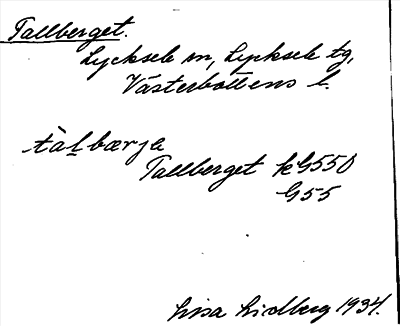 Tallberget.
Lycksele sn, Lycksele tg,
Västerbottens l.
tàḷbærja
Tallberget kG550
G55
Lisa Lidberg 1934.